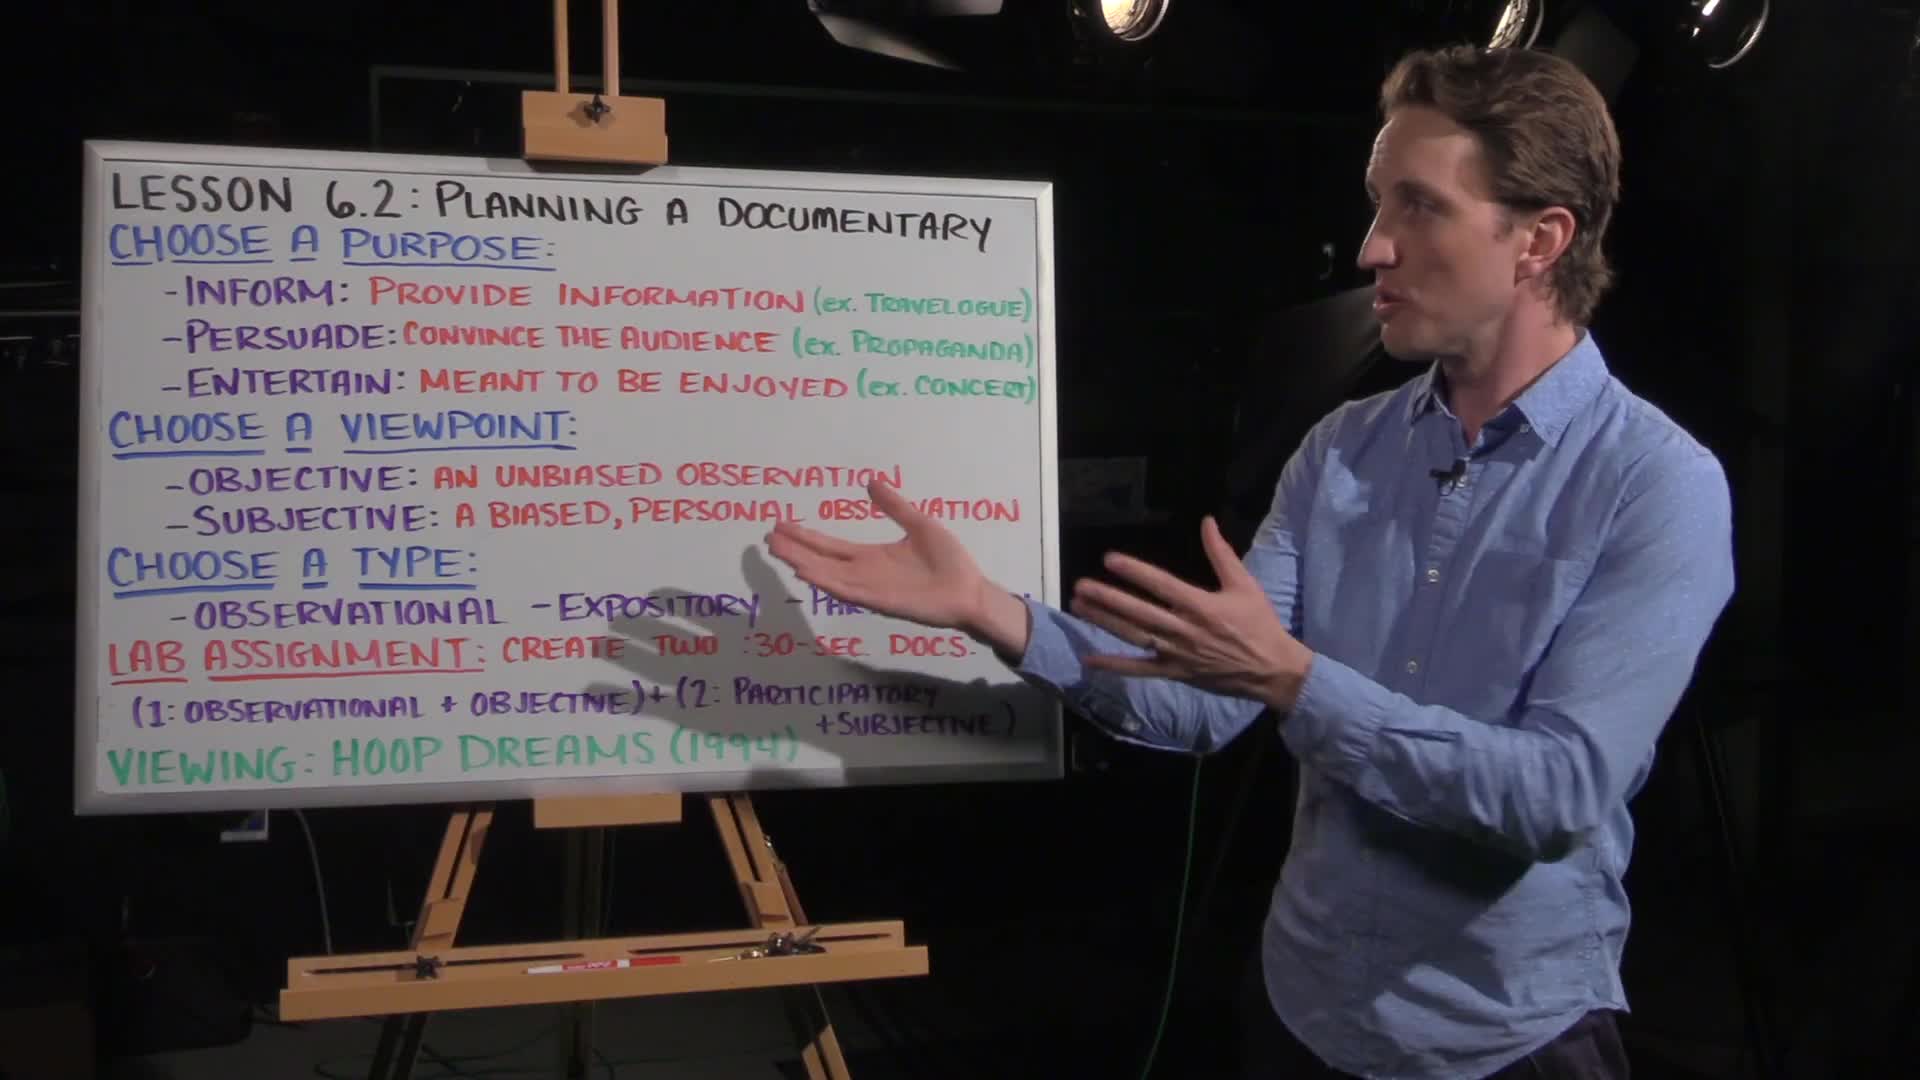 LESSON 6.2: PLANNING A DOCUMENTARY
CHOOSE A PURPOSE:
-INFORM: PROVIDE INFORMATION (ex. TRAVELOGUE)
-PERSUADE: CONVINCE THE AUDIENCE (ex. PROPAGANDA)
-ENTERTAIN: MEANT TO BE ENJOYED (ex. CONCERT)
CHOOSE A VIEWPOINT:
-OBJECTIVE: AN UNBIASED OBSERVATION
-SUBJECTIVE: A BIASED, PERSONAL OBSERVATION
CHOOSE A TYPE:
-OBSERVATIONAL -EXPOSITORY
LAB ASSIGNMENT: CREATE TWO :30-SEC. DOCS.
(1: OBSERVATIONAL + OBJECTIVE) + (2: PARTICIPATORY
+SUBJECTIVE)
VIEWING: HOOP DREAMS (1994)